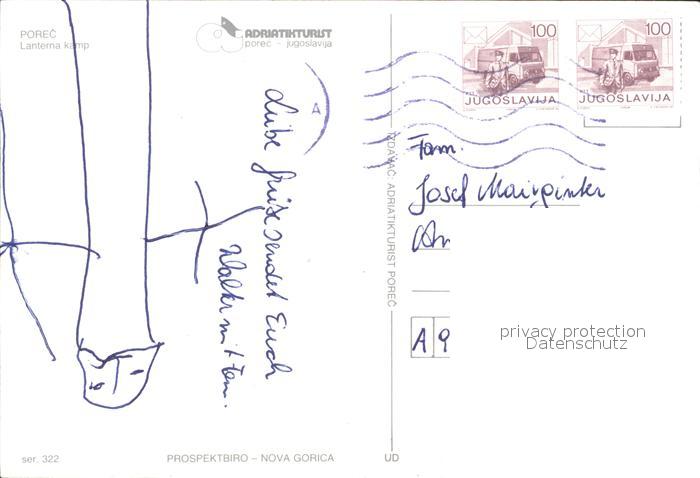 POREČ
Lanterna kamp
ADRIATIKTURIST
poreč - jugoslavija
100
JUGOSLAVIJA
100
JUGOSLAVIJA
A
Liebe Grüße sendet Euch
Walter mit Fam.
IZDAVAČ: ADRIATIKTURIST POREČ
Fam.
Josef
A 9
privacy protection
Datenschutz
ser. 322
PROSPEKTBIRO – NOVA GORICA
UD